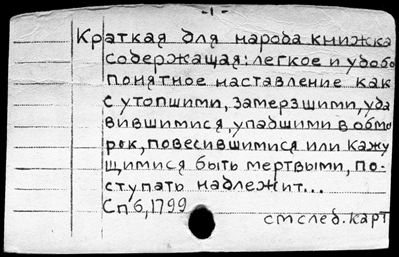 -1-
Краткая для народа книжка
содержащая: легкое и удобо
понятное наставление как
с утопшими, замерзшими, уда
вившимися, упадшими в обмо
рок, повесившимися или кажу
щимися быть мертвыми, по-
ступать надлежит...
Спб, 1799
см след. карт